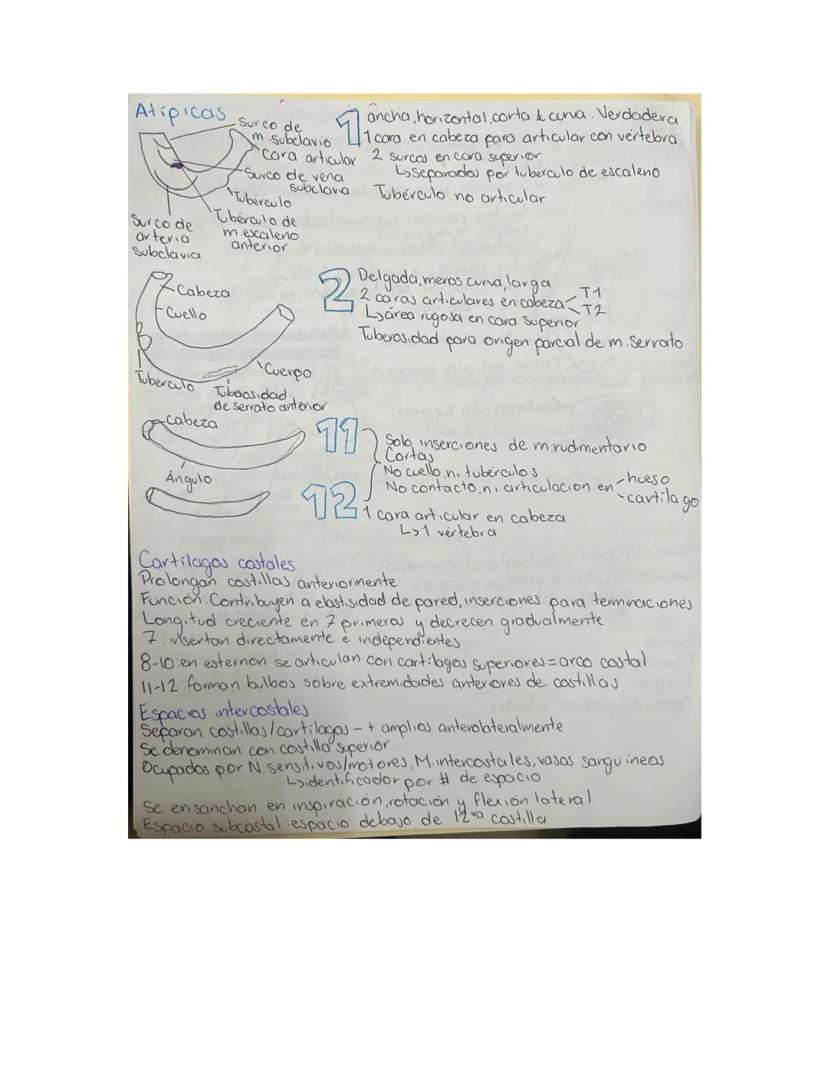 Atípicas
Surco de
m. subclavio
Cara articular
Surco de vena
subclavia
Tubérculo
Tubérculo de
m. escaleno
anterior
Surco de
arteria
subclavia
1 ancha, horizontal, corta & curva. Verdadera
1 cara en cabeza para articular con vértebra
2 surcos en cara superior
↳separados por tubérculo de escaleno
Tubérculo no articular
Cabeza
Cuello
Cuerpo
Tubérculo
Tuberosidad
de serrato anterior
2 Delgada, menos curva, larga
2 caras articulares en cabeza T1
T2
↳área rugosa en cara superior
Tuberosidad para origen parcial de m. serrato
Cabeza
Ángulo
11
12
Solo inserciones de m. rudimentario
Cortas
No cuello, ni tubérculos
No contacto, ni articulacion en hueso
cartílago
1 cara articular en cabeza
↳1 vértebra
Cartílagos costales
Prolongan costillas anteriormente
Función: Contribuyen a elastisidad de pared, inserciones para terminaciones
Longitud creciente en 7 primeros y decrecen gradualmente
7: insertan directamente e independientes
8-10: en esternón se articulan con cartílagos superiores = arco costal
11-12: forman bulbos sobre extremidades anteriores de costillas
Espacios intercostales
Separan costillas/cartilagos - + amplios anterolateralmente
Se denominan con costilla superior
Ocupados por N. sensitivos/motores, M. intercostales, vasos sanguineos
↳identificador por # de espacio
Se ensanchan en inspiración, rotación y flexión lateral
Espacio subcostal: espacio debajo de 12va costilla